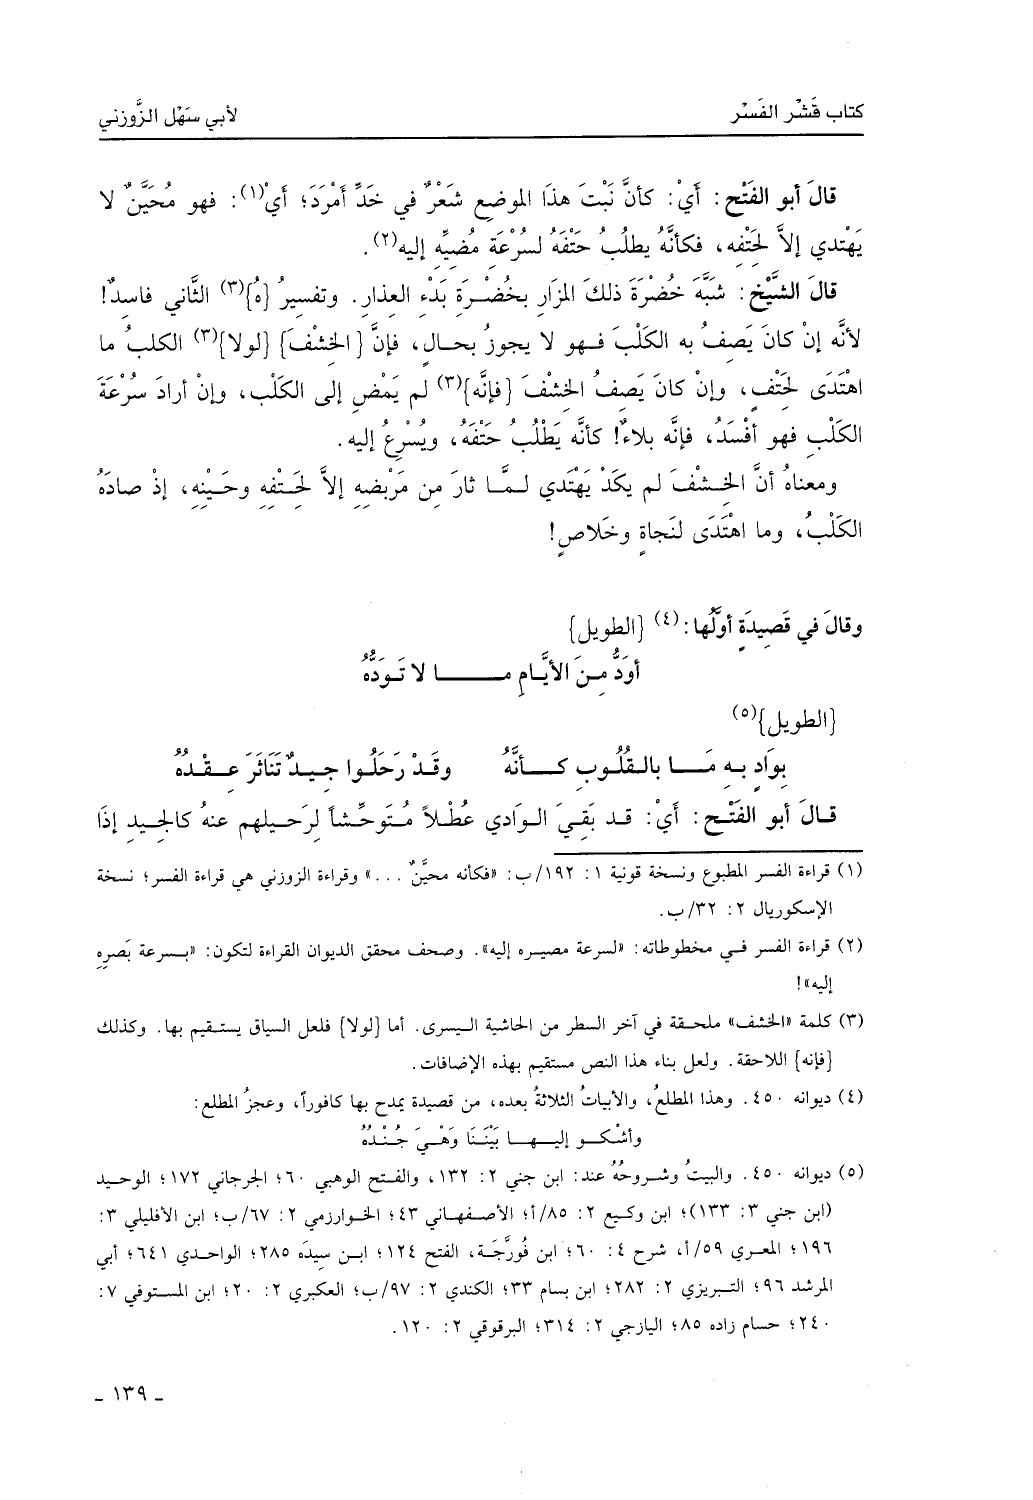 كتاب قَشْر الفَسْر
لأبي سَهْل الزَّوزني
قالَ أبو الفَتْح: أَيْ: كأنَّ نَبْتَ هذَا الموضع شَعْرٌ في خَدِّ أَمْرَدَ؛ أيْ(١): فهو مُحَيَّنٌ لا
يَهْتدي إلاَّ لحَتْفِه، فكأنَّهُ يطلُبُ حَتْفَهُ لسُرْعَةِ مُضيِّه إليه(٢).
قالَ الشَّيْخ: شَبَّهَ خُضْرَةَ ذلكَ المزَارِ بخُضْـرَةِ بَدْءِ العذارِ. وتفسيرُ {هُ}(٣) الثَّاني فاسدٌ!
لأنَّه إنْ كانَ يَصفُ به الكَلْبَ فـهو لا يجوزُ بحـال، فإنَّ {الخِشْفَ} {لولا}(٣) الكلبُ ما
اهْتَدَى لحَتْفٍ، وإنْ كانَ يَصفُ الخشْفَ {فإنَّه}(٣) لم يَمْضِ إلى الكَلْب، وإنْ أرادَ سُرْعَةَ
الكَلْبِ فهو أفْسَدُ، فإنَّه بلاءٌ! كأنَّه يَطْلُبُ حَتْفَهُ، ويُسْرِعُ إليه.
ومعناهُ أنَّ الخِـشْفَ لم يكَدْ يَهْتَدي لـمَّـا ثارَ من مَرْبضِهِ إلاَّ لحَـتْفِهِ وحَـيْنِهِ، إذْ صادَهُ
الكَلْبُ، وما اهْتَدَى لنَجاةٍ وخَلاصٍ!
وقالَ في قَصِيدَةٍ أوَّلُها:(٤) {الطويل}
أَوَدُّ مـنَ الأيَّـامِ مـــــا لا تَـوَدُّهُ
{الطويل}(٥)
بوَادٍ بـهِ مَـــا بالـقُلُـوبِ كـــأنَّهُ وقَـدْ رَحَلُـوا جـيـدٌ تَنَاثَرَ عِـقْـدُهُ
قـالَ أبو الفَتْـح: أَيْ: قـد بَقِـيَ الـوَادي عُطْـلاً مُـتَوحِّـشاً لرَحـيلهم عنهُ كالجـيد إذَا
(١) قراءة الفسر المطبوع ونسخة قونية ١: ١٩٢/ب: «فكأنه محيَّنٌ ...» وقراءة الزوزني هي قراءة الفسر؛ نسخة
الإسكوريال ٢: ٣٢/ب.
(٢) قراءة الفسر فـي مخطوطاته: «لسرعة مصيـره إليه». وصحف محقق الديوان القراءة لتكون: «بـسرعة بَصرِهِ
إليه»!
(٣) كلمة «الخشف» ملحقة في آخر السطر من الحاشية اليسرى. أما {لولا} فلعل السياق يستـقيم بها. وكذلك
{فإنه} اللاحقة. ولعل بناء هذا النص مستقيم بهذه الإضافات.
(٤) ديوانه ٤٥٠. وهذا المطلعُ، والأبياتُ الثلاثةُ بعده، من قصيدة يمدح بها كافوراً، وعجزُ المطلع:
وأَشْكـو إليـهـا بَيْنَنَا وَهْيَ جُـنْدُهُ
(٥) ديوانه ٤٥٠. والبيتُ وشـروحُهُ عند: ابن جني ٢: ١٣٢، والفـتح الوهبي ٦٠؛ الجرجاني ١٧٢؛ الوحيد
(ابن جني ٣: ١٣٣)؛ ابن وكيع ٢: ٨٥/أ؛ الأصفهاني ٤٣؛ الخوارزمي ٢: ٦٧/ب؛ ابن الأفليلي ٣:
١٩٦؛ المعري ٥٩/أ، شرح ٤: ٦٠؛ ابن فُورَّجَة، الفتح ١٢٤؛ ابـن سِيدَه ٢٨٥؛ الواحدي ٦٤١؛ أبي
المرشد ٩٦؛ التبريزي ٢: ٢٨٢؛ ابن بسام ٣٣؛ الكندي ٢: ٩٧/ب؛ العكبري ٢: ٢٠؛ ابن المستوفي ٧:
٢٤٠؛ حسام زاده ٨٥؛ اليازجي ٢: ٣١٤؛ البرقوقي ٢: ١٢٠.
ـ ١٣٩ ـ